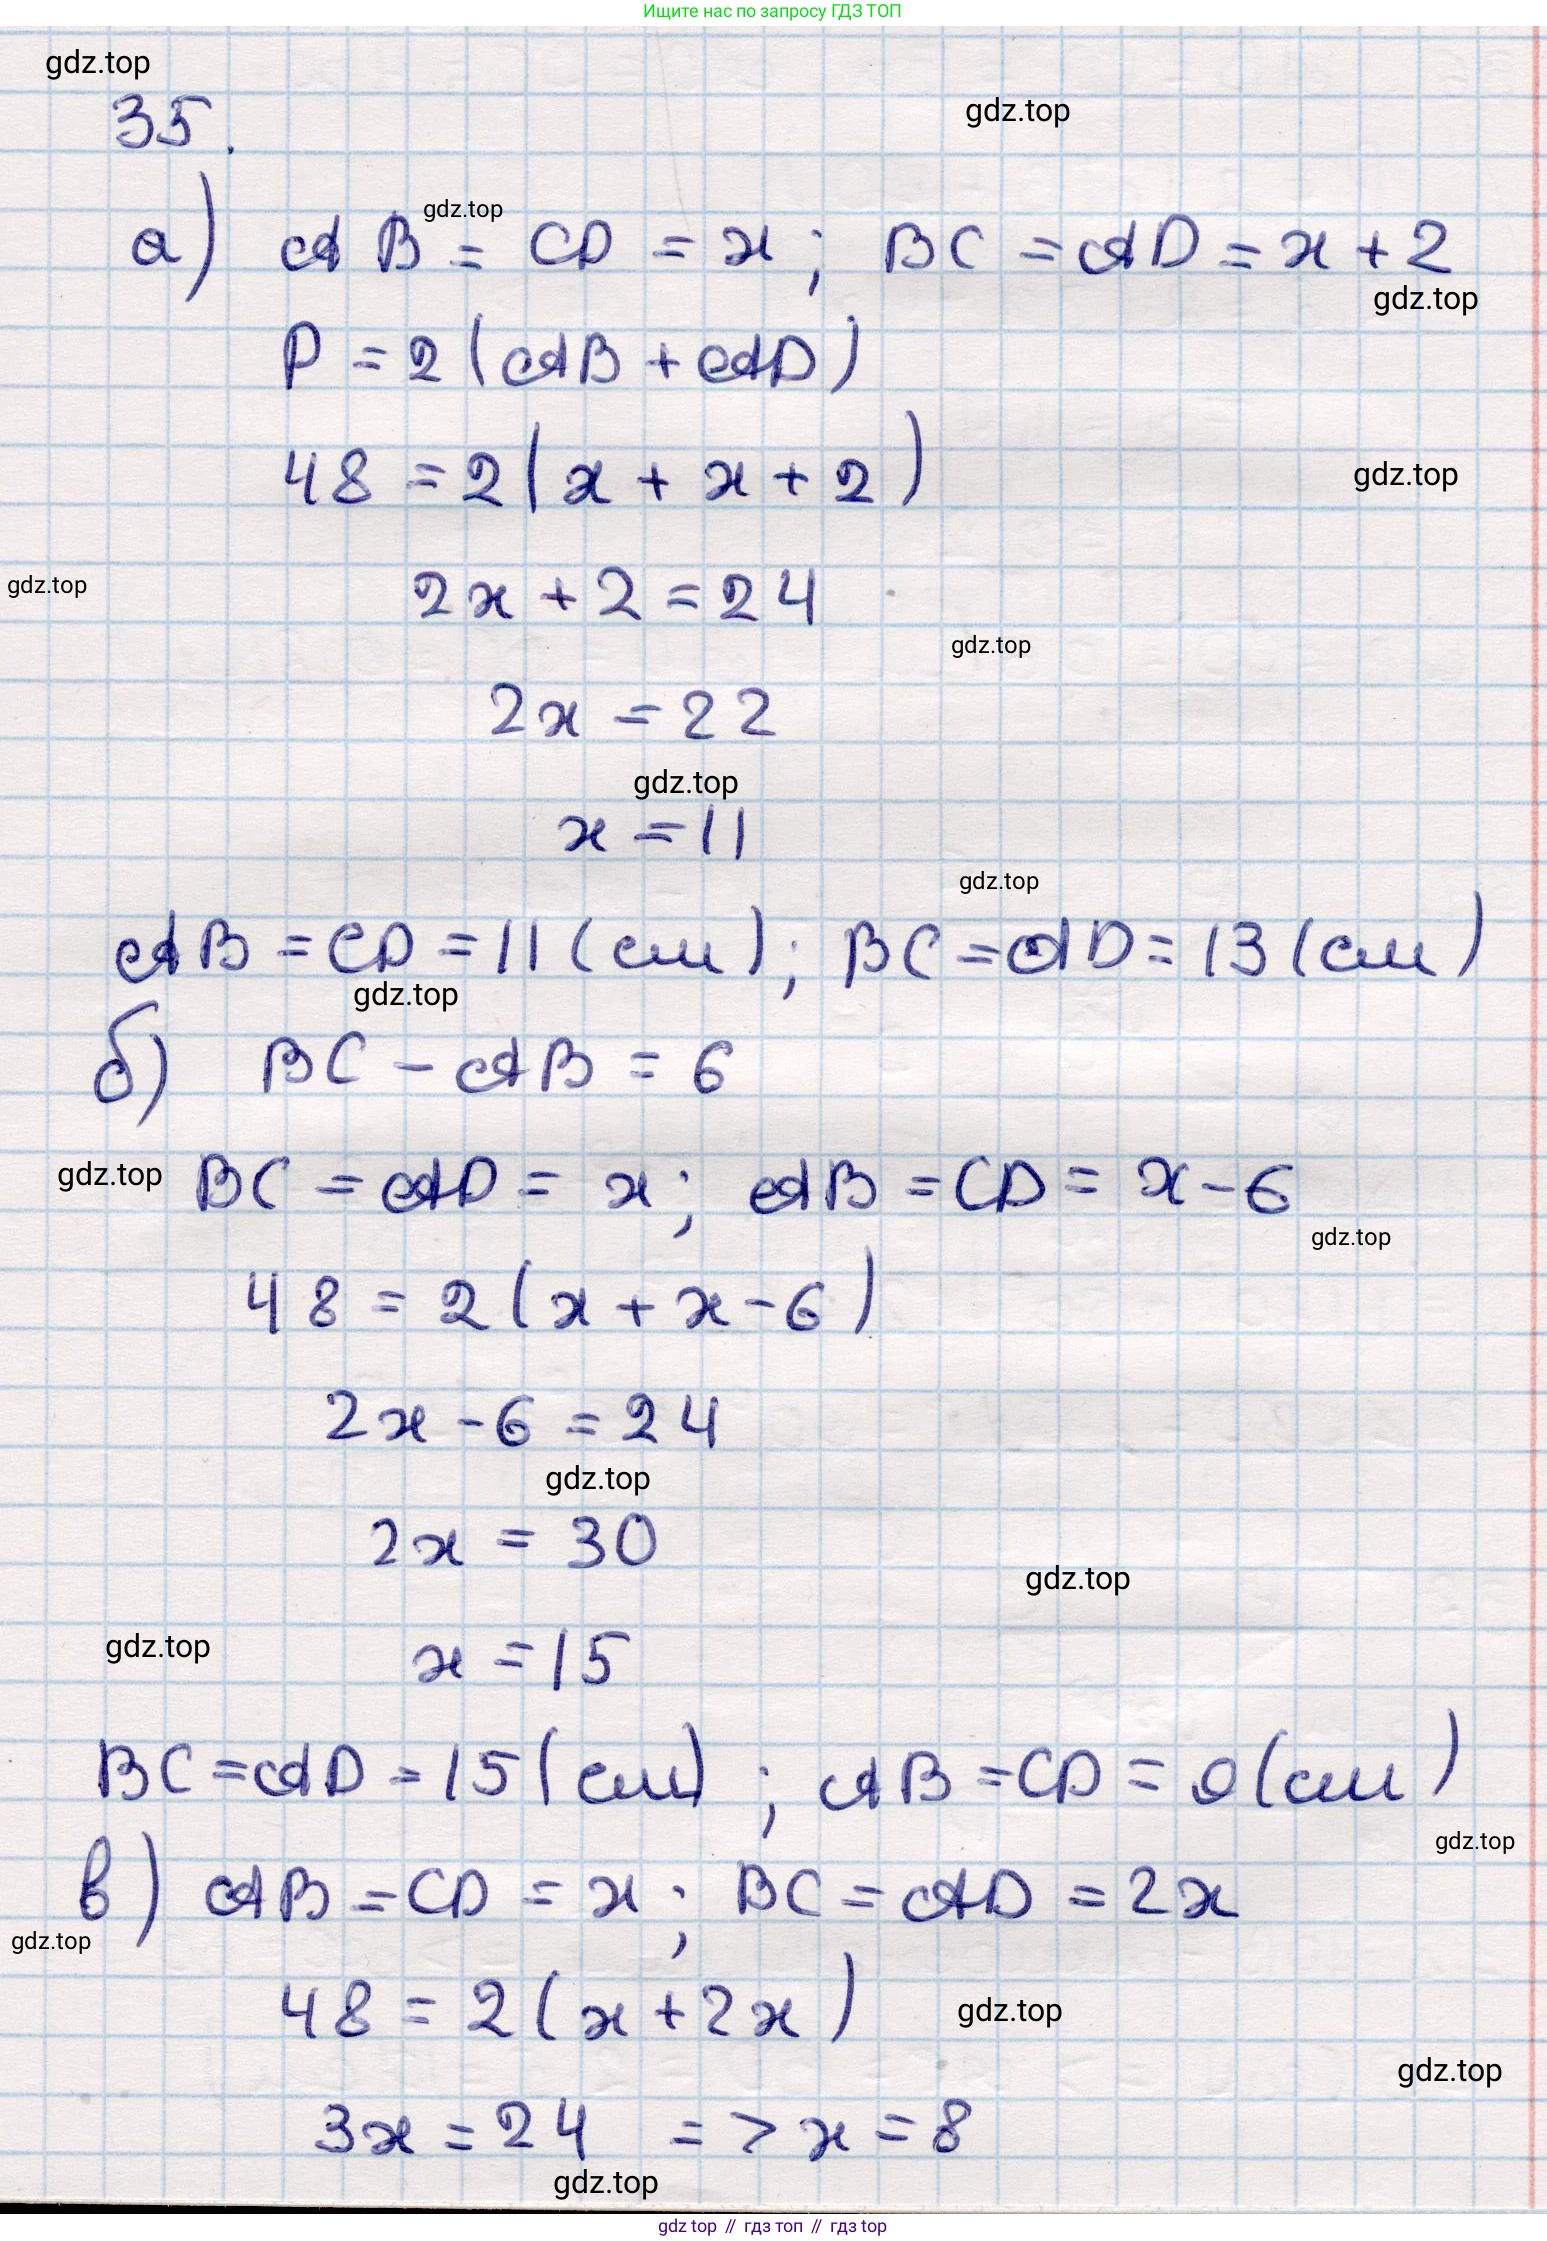 Ищите нас по запросу ГДЗ ТОП
gdz.top
gdz.top
35.
gdz.top
а) AB = CD = x; BC = AD = x + 2
gdz.top
P = 2(AB + AD)
48 = 2(x + x + 2)
gdz.top
gdz.top
2x + 2 = 24
gdz.top
2x = 22
gdz.top
x = 11
gdz.top
AB = CD = 11 (см); BC = AD = 13 (см)
gdz.top
б) BC - AB = 6
gdz.top
BC = AD = x; AB = CD = x - 6
gdz.top
48 = 2(x + x - 6)
2x - 6 = 24
gdz.top
2x = 30
gdz.top
gdz.top
x = 15
BC = AD = 15 (см); AB = CD = 9 (см)
gdz.top
в) AB = CD = x; BC = AD = 2x
gdz.top
48 = 2(x + 2x)
gdz.top
gdz.top
3x = 24 => x = 8
gdz.top
gdz top // гдз топ // гдз top